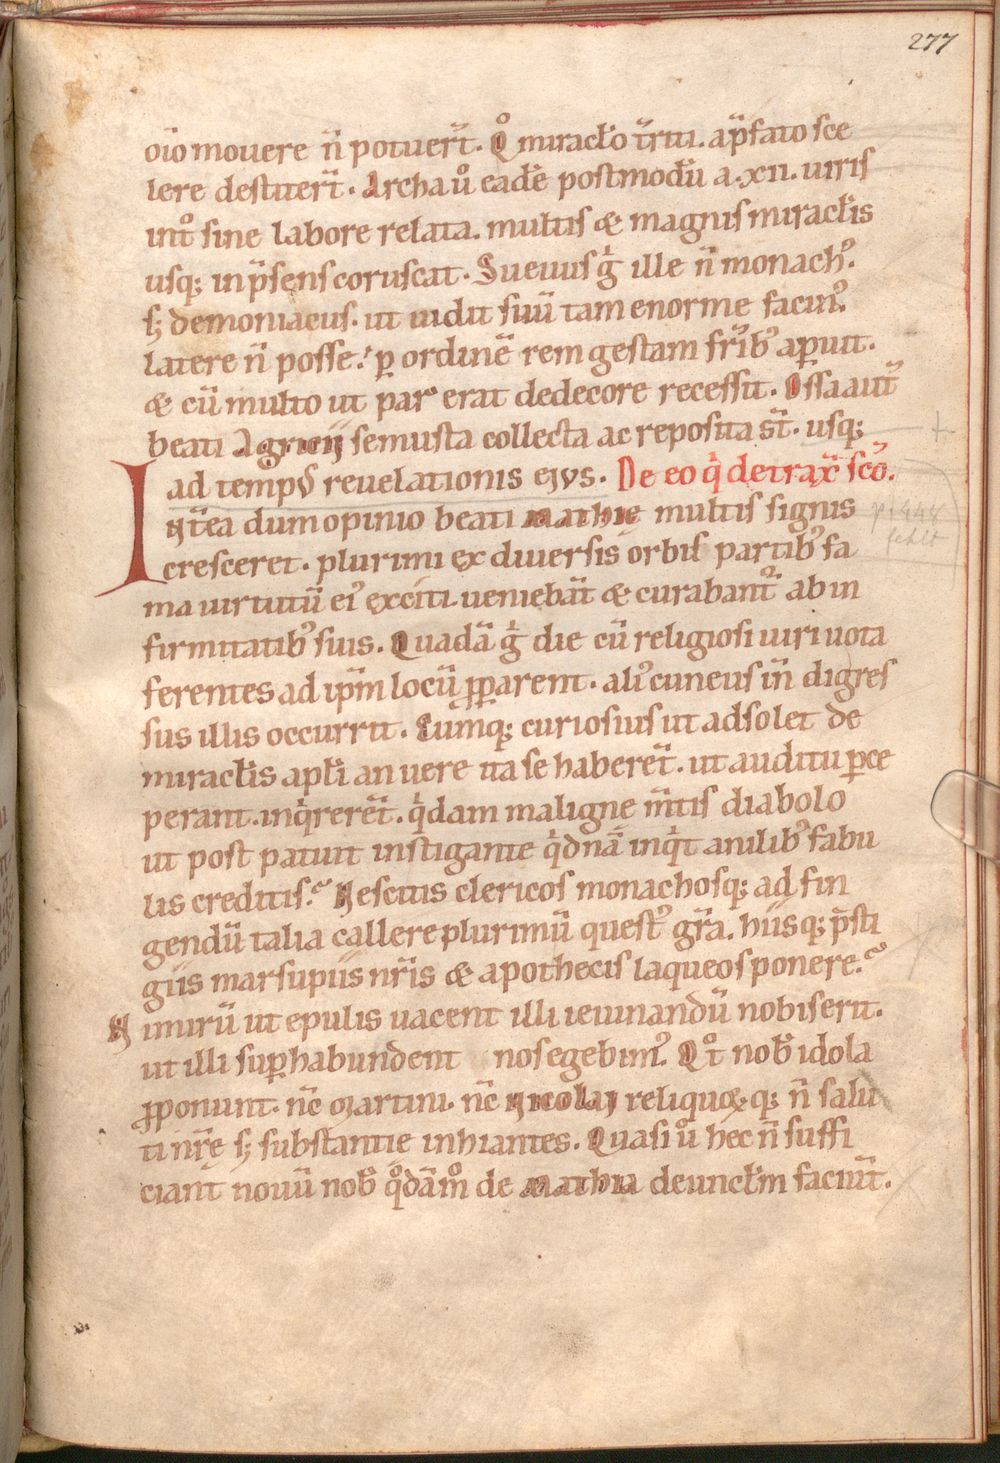 277
oīo mouere n̄ potuer̄t. Qͦ miracł̄o t̄riti. a p̄fato sce
lere destiter̄t. Archa uͦ eadē postmodū a .xii. uiris
intͦ sine labore relata. multis & magnis miracł̄is
usq; in p̄sens coruscat. Sueuus gͥ ille n̄ monachꝰ.
s; demoniacus. ut uidit suū tam enorme facinꝰ
latere n̄ posse. ꝑ ordinē rem gestam fr̄ibꝰ aꝑuit.
& cū multo ut par erat dedecore recessit. Ossa autē
beati Agricij semusta collecta ac reposita st̄. usq;
ad tempꝰ reuelationis ejus. De eo qͥ detrax̄ scō.
Int̄ea dum opinio beati mathie multis signis
cresceret. plurimi ex diuersis orbis partibꝰ fa
ma uirtutū eiꝰ exciti. ueniebāt & curabant᷑ ab in
firmitatibꝰ suis. Quadā gͥ die cū religiosi uiri uota
ferentes ad ip̄m locū ꝓꝑarent. aliꝰ cuneus in̄ digres
sus illis occurrit. Cumq; curiosius ut adsolet de
miracł̄is apł̄i an uere ita se haberēt. ut auditu ꝑce
perant. inqͥrerēt. qͥdam maligne m̄tis diabolo
ut post patuit instigante qͥd nā inqͥt anilibꝰ fabu
lis creditis? Nescitis clericos monachosq; ad fin
gendū talia callere plurimū questꝰ gr̄a. hiisq; p̄sti
giis marsupiis nr̄is & apothecis laqueos ponere?
Nimirū ut epulis uacent illi ieiunandū nobis erit.
ut illi suꝑhabundent nos egebimꝰ. Qͦt nob̄ idola
ꝓponunt. nc̄ Martini. nc̄ Nicolaj reliquoꝝq; n̄ salu
ti nr̄ę s; substantie inhiantes. Quasi uͦ hec n̄ suffi
ciant nouū nob̄ qͦdāmͦ de mathia deuncł̄m faciūt.